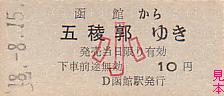 函館から
五稜郭ゆき
発売当日限り有効
下車前途無効 10円
D函館駅発行
小
-8.15.
見本